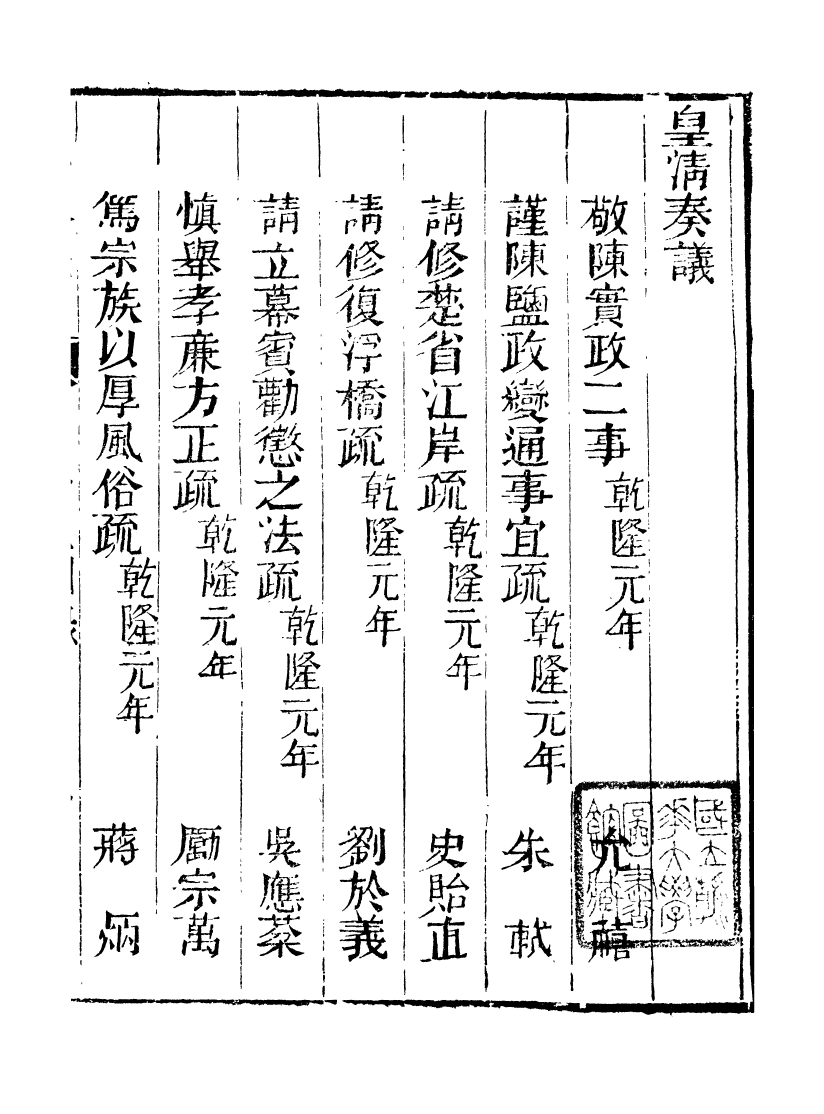 皇清奏議
敬陳實政二事 乾隆元年 允禧
謹陳鹽政變通事宜疏 乾隆元年 朱軾
請修楚省江岸疏 乾隆元年 史貽直
請修復浮橋疏 乾隆元年 劉於義
請立幕賓勸懲之法疏 乾隆元年 吳應棻
慎舉孝廉方正疏 乾隆元年 勵宗萬
篤宗族以厚風俗疏 乾隆元年 蔣炳
國立清華大學圖書館藏